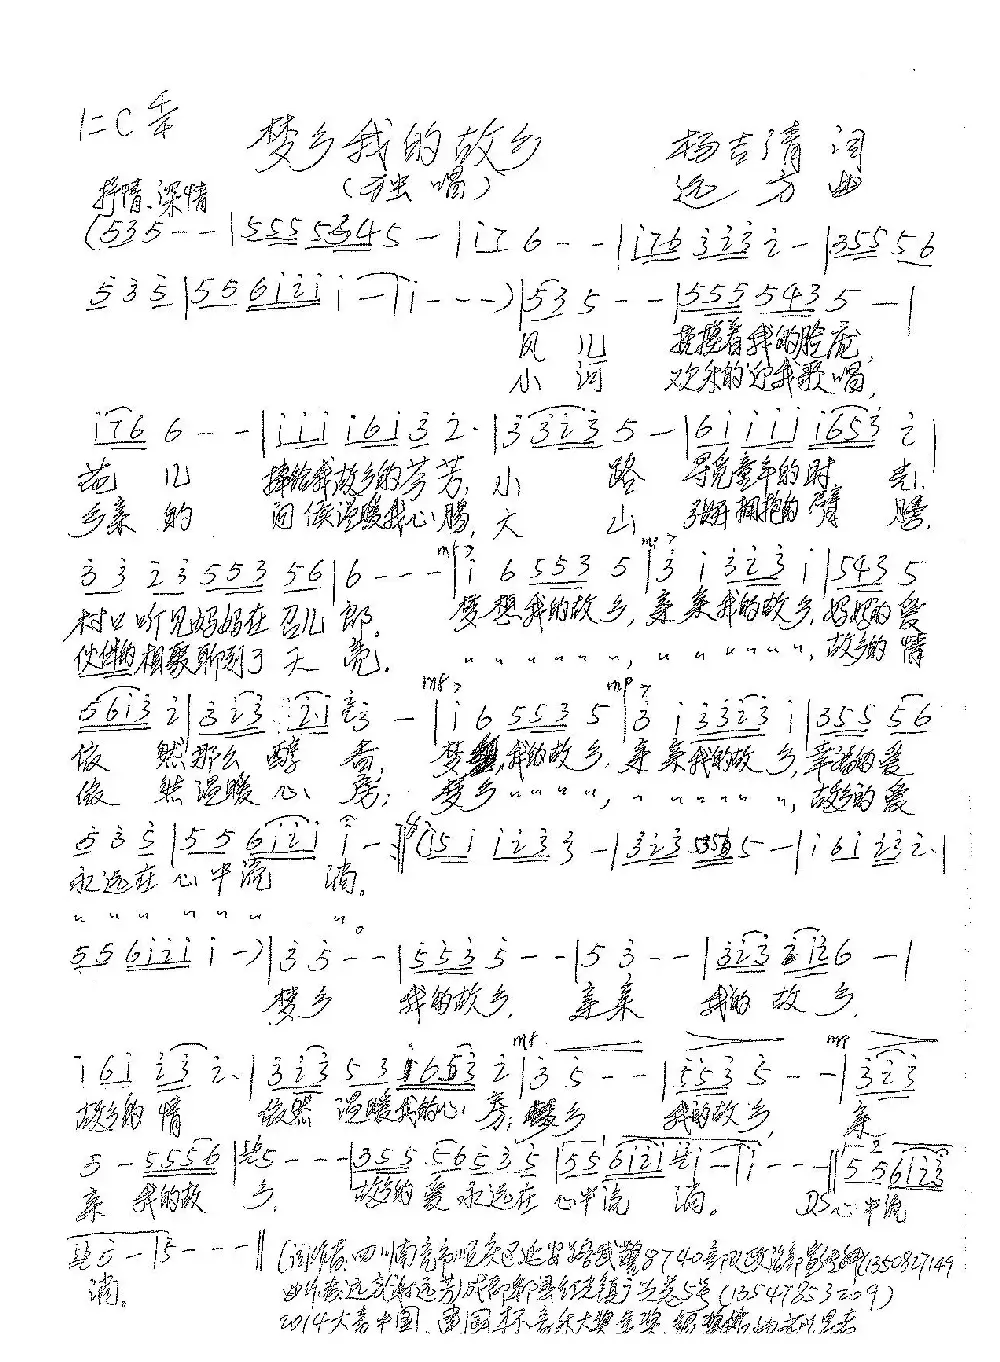 1=C 4/4
梦乡我的故乡
(独唱)
杨吉清 词
远方 曲
抒情、深情
(535--|555 5345-|i76--|i76 3232-|355 56
535|55 6i2i i-|i---)|535--|555 5435-|
风儿 拢拢着我的脸庞,
小河 欢乐的迎我歌唱,
i76 6--|iii i6i3 2.|3 3235-|6iii i653 2|
花儿 捧给我故乡的芬芳, 小路 寻觅童年的时光,
乡亲的 问候温暖我心肠, 大山 张开拥抱的臂膀.
33 23 553 56|6---|i6 553 5|3i 323 i|543 5
mf mp
村口听见妈妈在召儿郎. 梦想我的故乡,亲亲我的故乡,妈妈的爱
伙伴的相聚聊到了天亮. 〃〃〃〃〃〃,〃〃〃〃〃〃,故乡的情
56i3 2|3 23 2.i 3-|i6 553 5|3i 3323 i|355 56
mf mp
依然那么醇香, 梦想,我的故乡,亲亲我的故乡,幸福的爱
依然温暖心房; 梦乡〃〃〃〃,〃〃〃〃〃〃,故乡的爱
535|55 6i2i i-‖(i5i i233-|323 5565-|i6i 232.|
永远在心中流淌。
〃〃〃〃〃〃 〃。
55 6i2i i-)|35--|553 5--|53--|323 3i26-|
梦乡 我的故乡. 亲亲 我的故乡.
i6i 232.|323 53 i653 2|35--|553 5--|323
mf mp
故乡的情 依然温暖我的心房; 梦乡 我的故乡, 亲
5-5556|5---|355 5653 5|55 6i2i i-|i---‖55 6i23
亲我的故乡. 故乡的爱永远在心中流淌。 D.S.心中流
5-|5---‖
淌。
(词作者:四川南充市顺庆区延安路武警8740部队政治部
曲作者:远方(谢远芳)成都郫县红光镇广元巷5号(13547853209)
2014大音中国